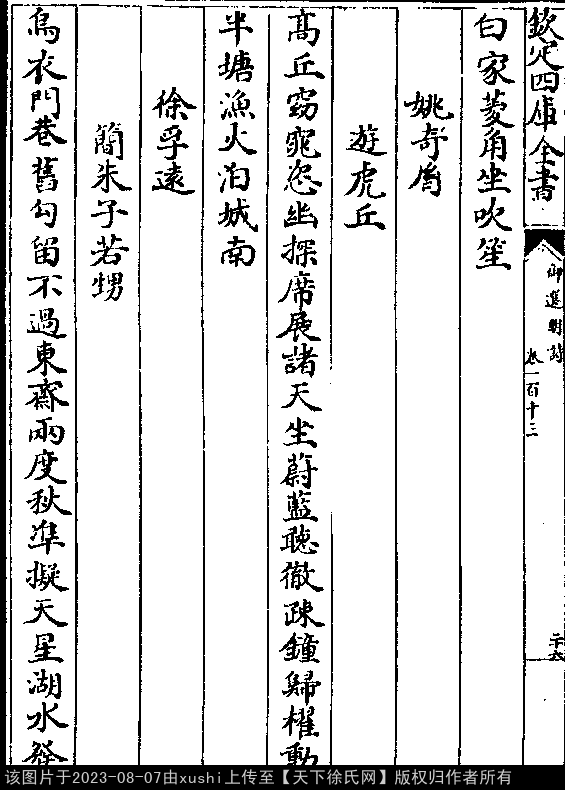 欽定四庫全書
御選明詩
卷一百十三
二十六
白家菱角坐吹笙
姚奇胤
遊虎丘
髙丘窈窕恣幽探席展諸天坐蔚藍聽徹疎鐘歸櫂動
半塘漁火泊城南
徐孚遠
簡朱子若甥
烏衣門巷舊勾留不過東齋兩度秋準擬天星湖水發
该图片于2023-08-07由xushi上传至【天下徐氏网】版权归作者所有